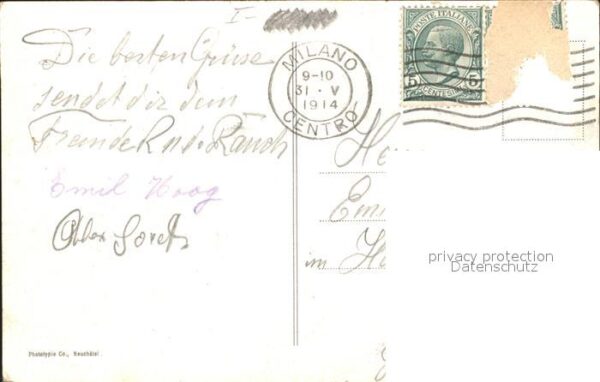 I-
Die besten Grüsse
sendet dir dein
Freund
Emil Hoog
MILANO
9-10
31 · V
1914
CENTRO
POSTE ITALIANE
5 5
CENTESIMI
He
Em
im Ha
privacy protection
Datenschutz
Phototypie Co., Neuchâtel.